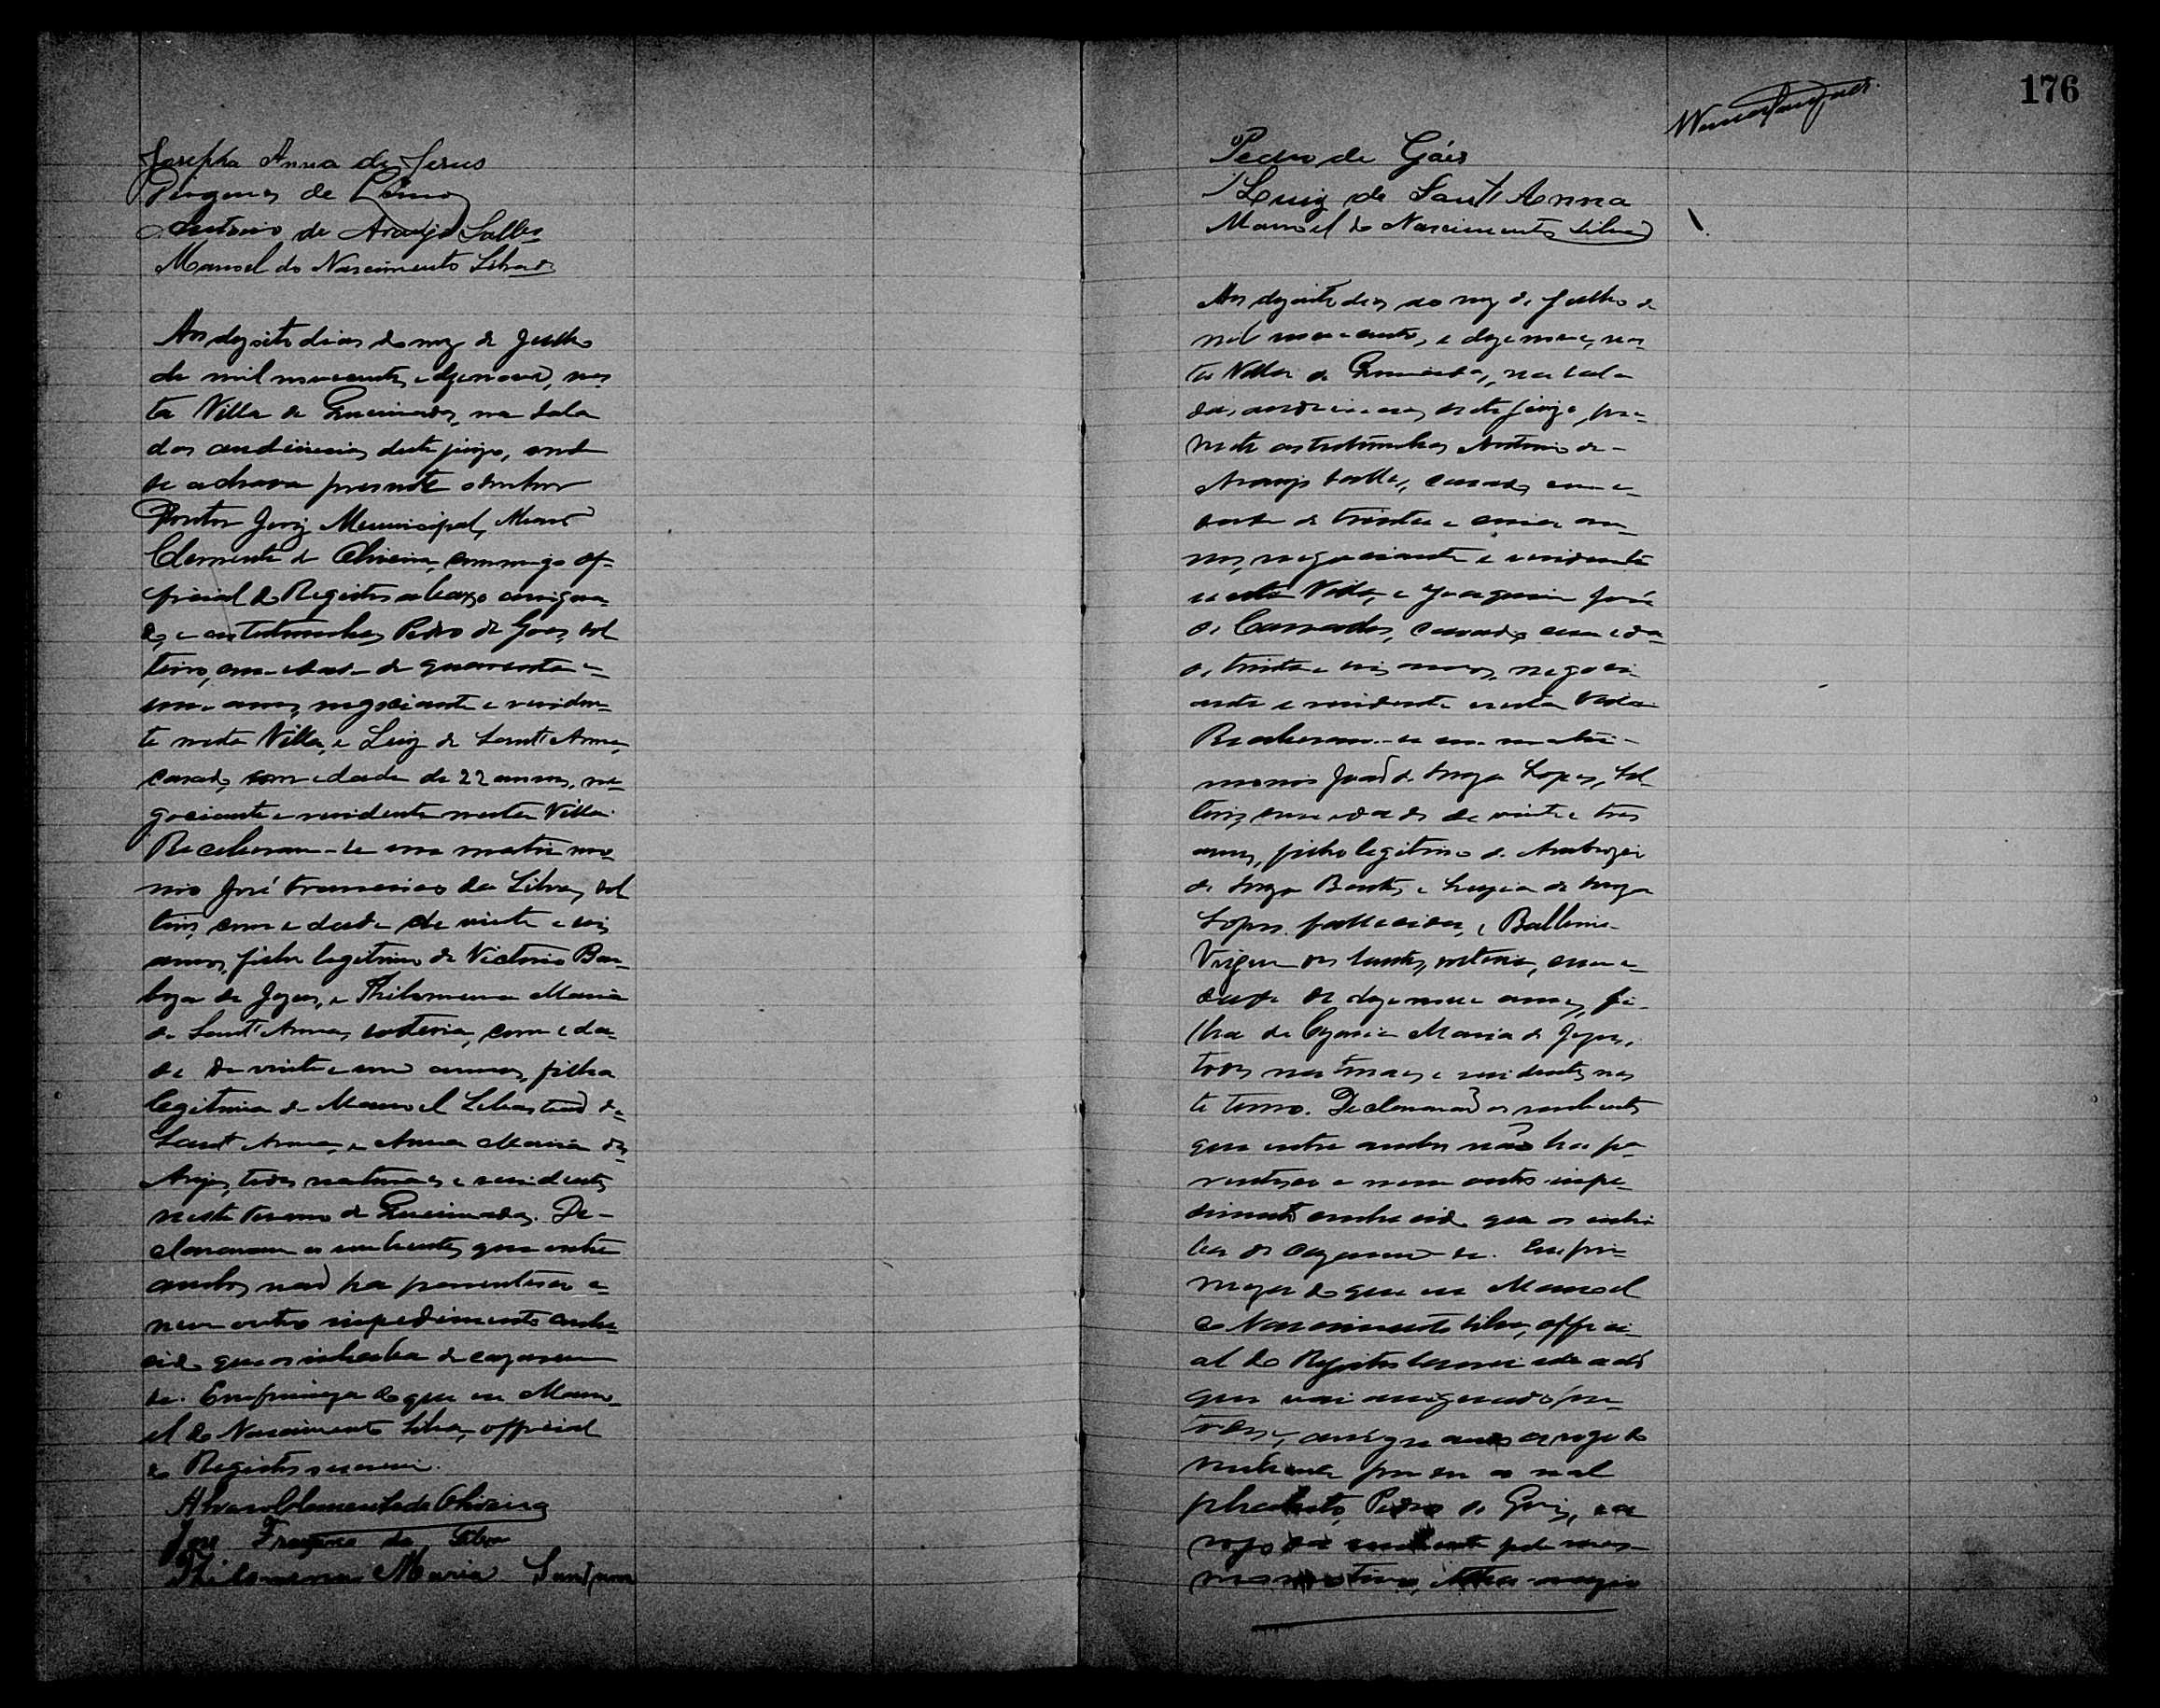 Josepha Anna de Jesus
de Lemos
Antonio de Araujo Salles
Manoel do Nascimento Silva
Aos dezoito dias do mez de Julho
de mil novecentos e dezenove, nes
ta Villa de Queimadas, na sala
das audiencias deste juizo, onde
se achava presente o senhor
Doutor Juiz Municipal, Alvaro
Clemente de Oliveira, commigo of-
ficial do Registro abaixo assigna-
do, e as testemunhas Pedro de Goes, sol
teiro, com edade de quarenta e
um annos, negociante e residen-
te nesta Villa, e Luiz de Sant'Anna,
casado, com edade de 22 annos, ne-
gociante e residente nesta Villa.
Receberam-se em matrimo-
nio José Francisco da Silva, sol
teiro, com edade de vinte e seis
annos, filho legitimo de Victorio Bar-
boza de Jezus, e Philomena Maria
de Sant'Anna, solteira, com eda-
de de vinte e um annos, filha
legitima de Manoel Sebastião de
Sant'Anna, e Anna Maria dos
Anjos, todos naturaes e residentes
neste termo de Queimadas. De-
clararam os nubentes que entre
ambos não ha parentesco e
nem outro impedimento conhe-
cido que os inhiba de cazarem
se. Em firmeza do que eu Mano-
el do Nascimento Silva, official
do Registro escrevi.
Alvaro Clemente de Oliveira
José Francisco da Silva
Philomena Maria Santanna
176
Pedro de Góes
Luiz de Sant'Anna
Manoel do Nascimento Silva
Aos dezoito dias do mez de Julho de
mil novecentos e dezenove, nes-
ta Villa de Queimadas, na sala
das audiencias deste juizo, pre-
sente as testemunhas Antonio de
Araujo Salles, casado, com e-
dade de trinta e cinco an-
nos, negociante e residente
nesta Villa, e Joaquim José
de casado, com eda
de trinta e seis annos, negoci-
ante e residente nesta Villa.
Receberam-se em matri-
monio João de Souza Lopes, sol-
teiro, com edade de vinte e tres
annos, filho legitimo de
de Souza e de Souza
Lopes, fallecidos, e
Virgem dos Santos, solteira, com e-
dade de dezenove annos, fi-
lha de Maria de Jezus,
todos naturaes e residentes nes
te termo. Declararão os nubentes
que entre ambos não ha pa-
rentesco e nem outro impe-
dimento conhecido que os inhi
ba de cazarem-se. Em fir-
meza do que eu Manoel
do Nascimento Silva, offici-
al do Registro
que vai assignado por
todos, assignando a rogo do
nubente por ser
Pedro de Goes, e a
rogo da nubente pelo mes-
mo motivo,